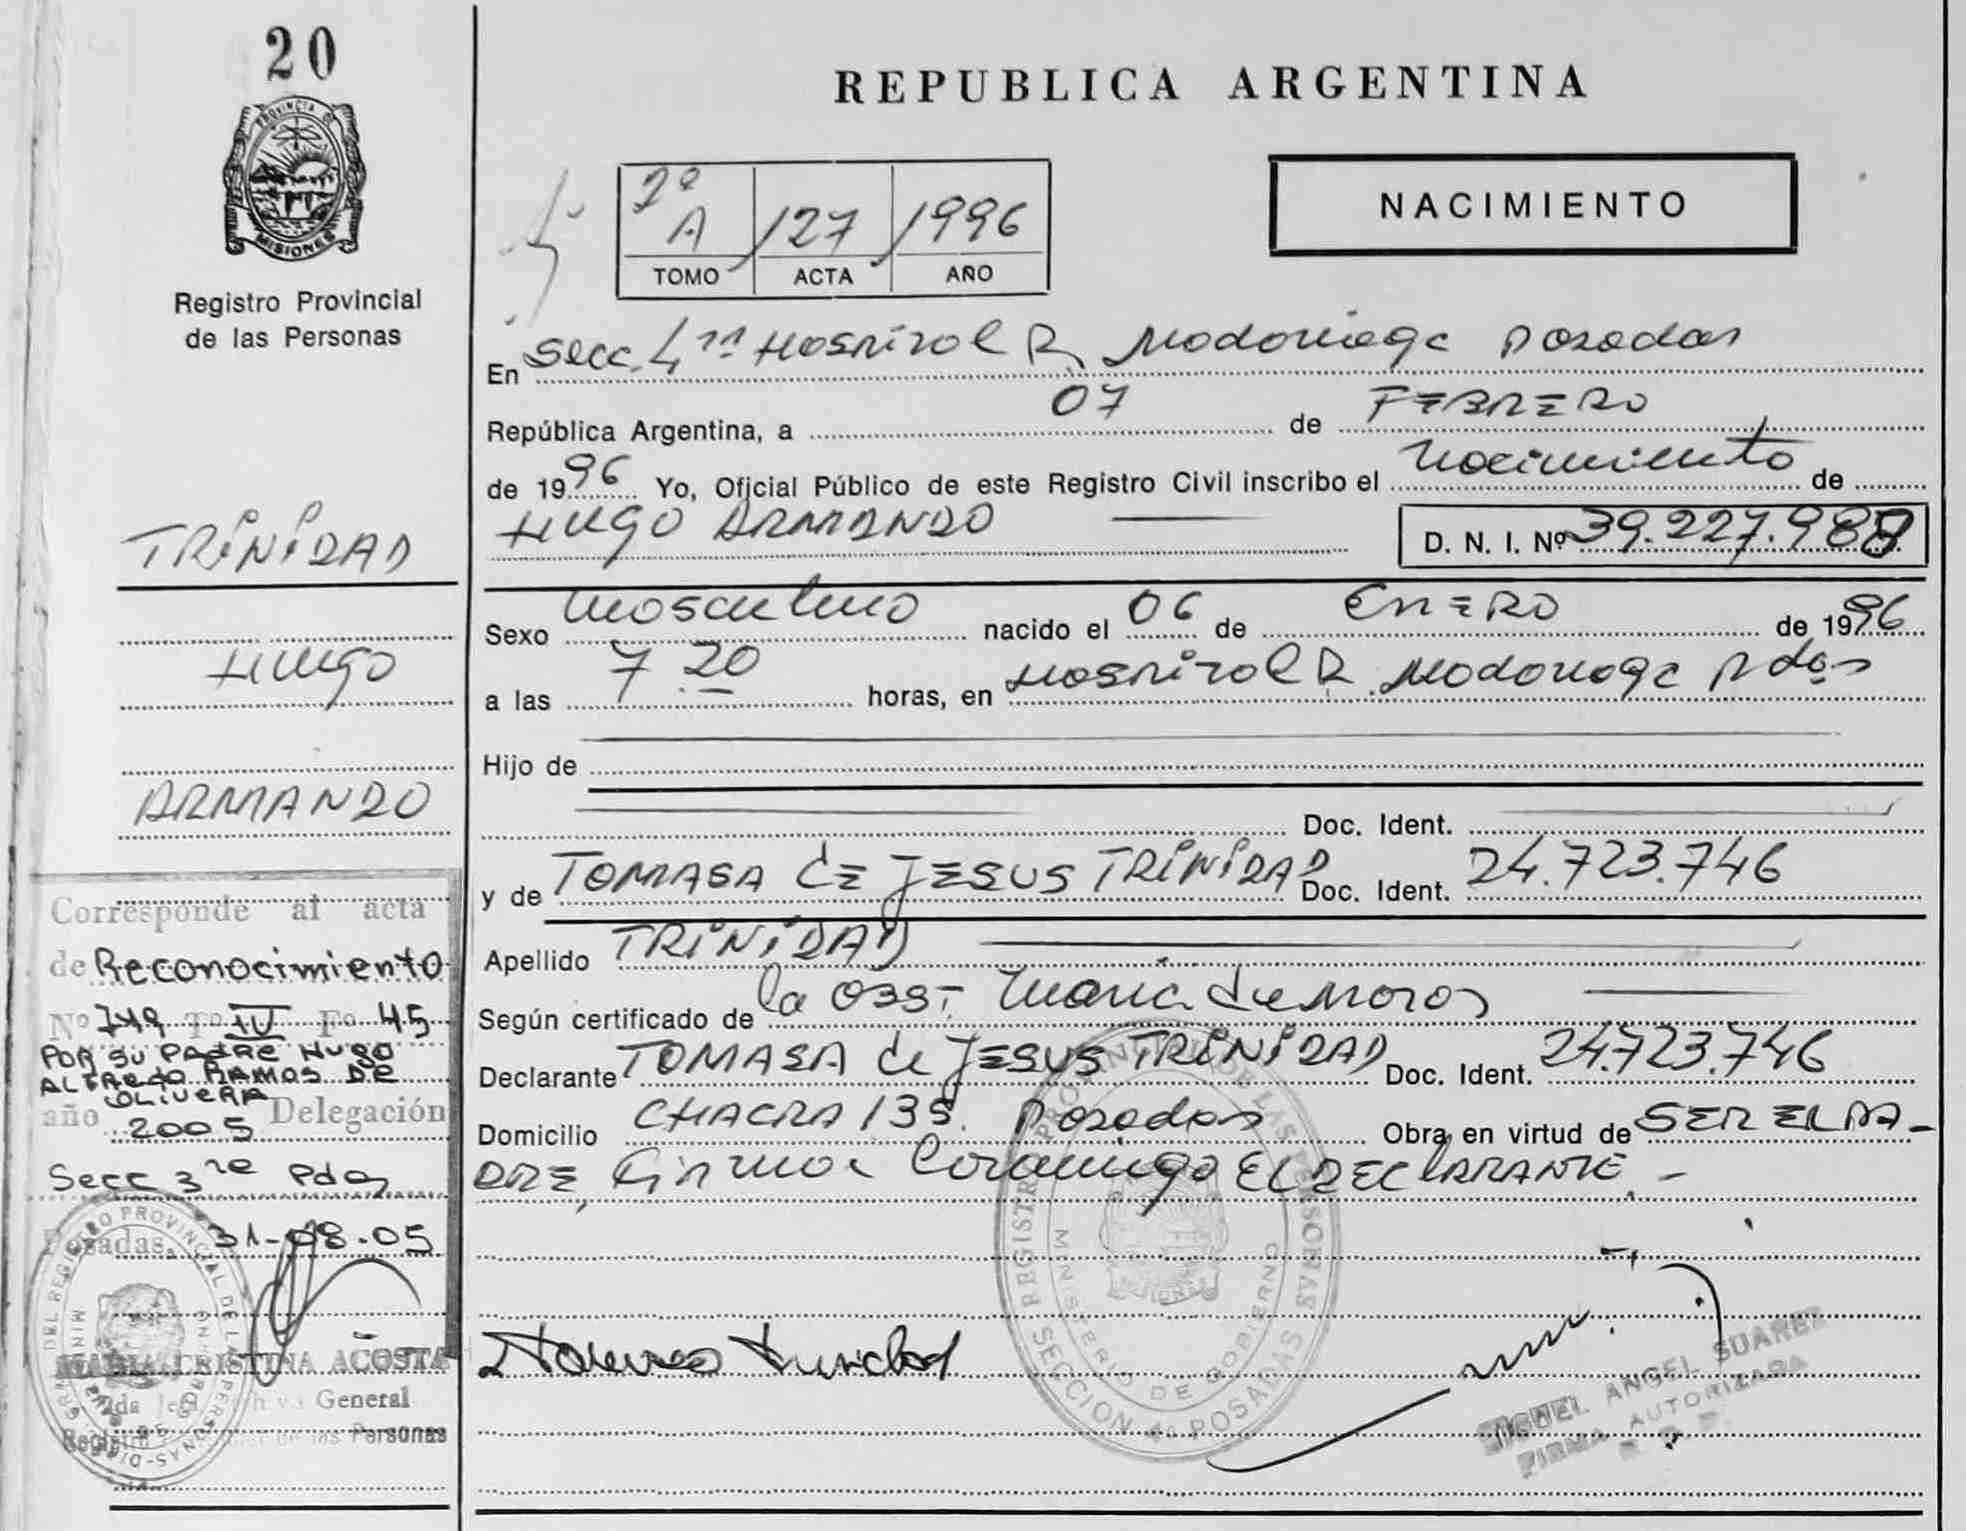 20
PROVINCIA DE
MISIONES
Registro Provincial
de las Personas
REPUBLICA ARGENTINA
NACIMIENTO
2º A 127 1996
TOMO ACTA AÑO
En Secc. 4ta Hospital R. Madariaga Posadas
República Argentina, a 07 de FEBRERO
de 1996 Yo, Oficial Público de este Registro Civil inscribo el Nacimiento de
HUGO ARMANDO
D. N. I. Nº 39.227.98
Sexo Masculino nacido el 06 de ENERO de 1996
a las 7.20 horas, en Hospital R. Madariaga Pdas
Hijo de
Doc. Ident.
y de TOMASA de JESUS TRINIDAD Doc. Ident. 24.723.746
Apellido TRINIDAD
Según certificado de la Obst. María de
Declarante TOMASA de JESUS TRINIDAD Doc. Ident. 24.723.746
Domicilio CHACRA 135. Posadas Obra en virtud de SER EL PA-
DRE, Firma Conmigo EL DECLARANTE.-
TRINIDAD
HUGO
ARMANDO
Corresponde al acta
de Reconocimiento
Nº 749 Tº IV Fº 45
POR SU PADRE HUGO
ALFREDO RAMOS DE
OLIVERA
año 2005 Delegación
Secc 3ra Pdas
Posadas, 31-08-05
MARIA CRISTINA ACOSTA
General
de las Personas
REGISTRO PROVINCIAL DE LAS PERSONAS
MINISTERIO DE GOBIERNO
SECCION 4ª POSADAS
MIGUEL ANGEL SUAREZ
FIRMA AUTORIZADA